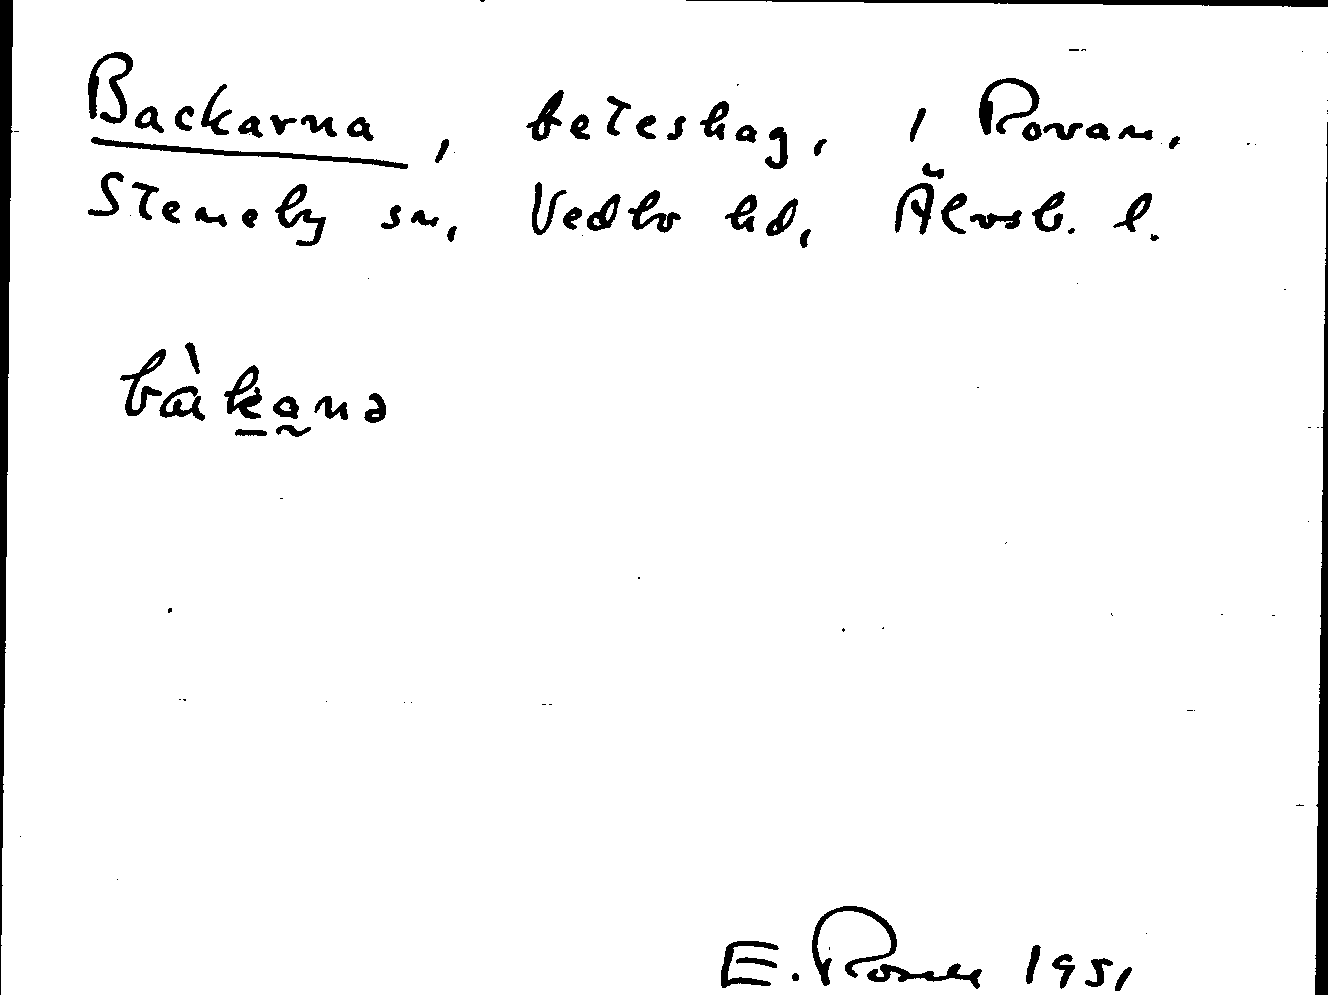 Backarna, beteshag, i Rovan,
Steneby sn, Vedbo hd, Älvsb. l.
bàkana
E. Rosell 1951